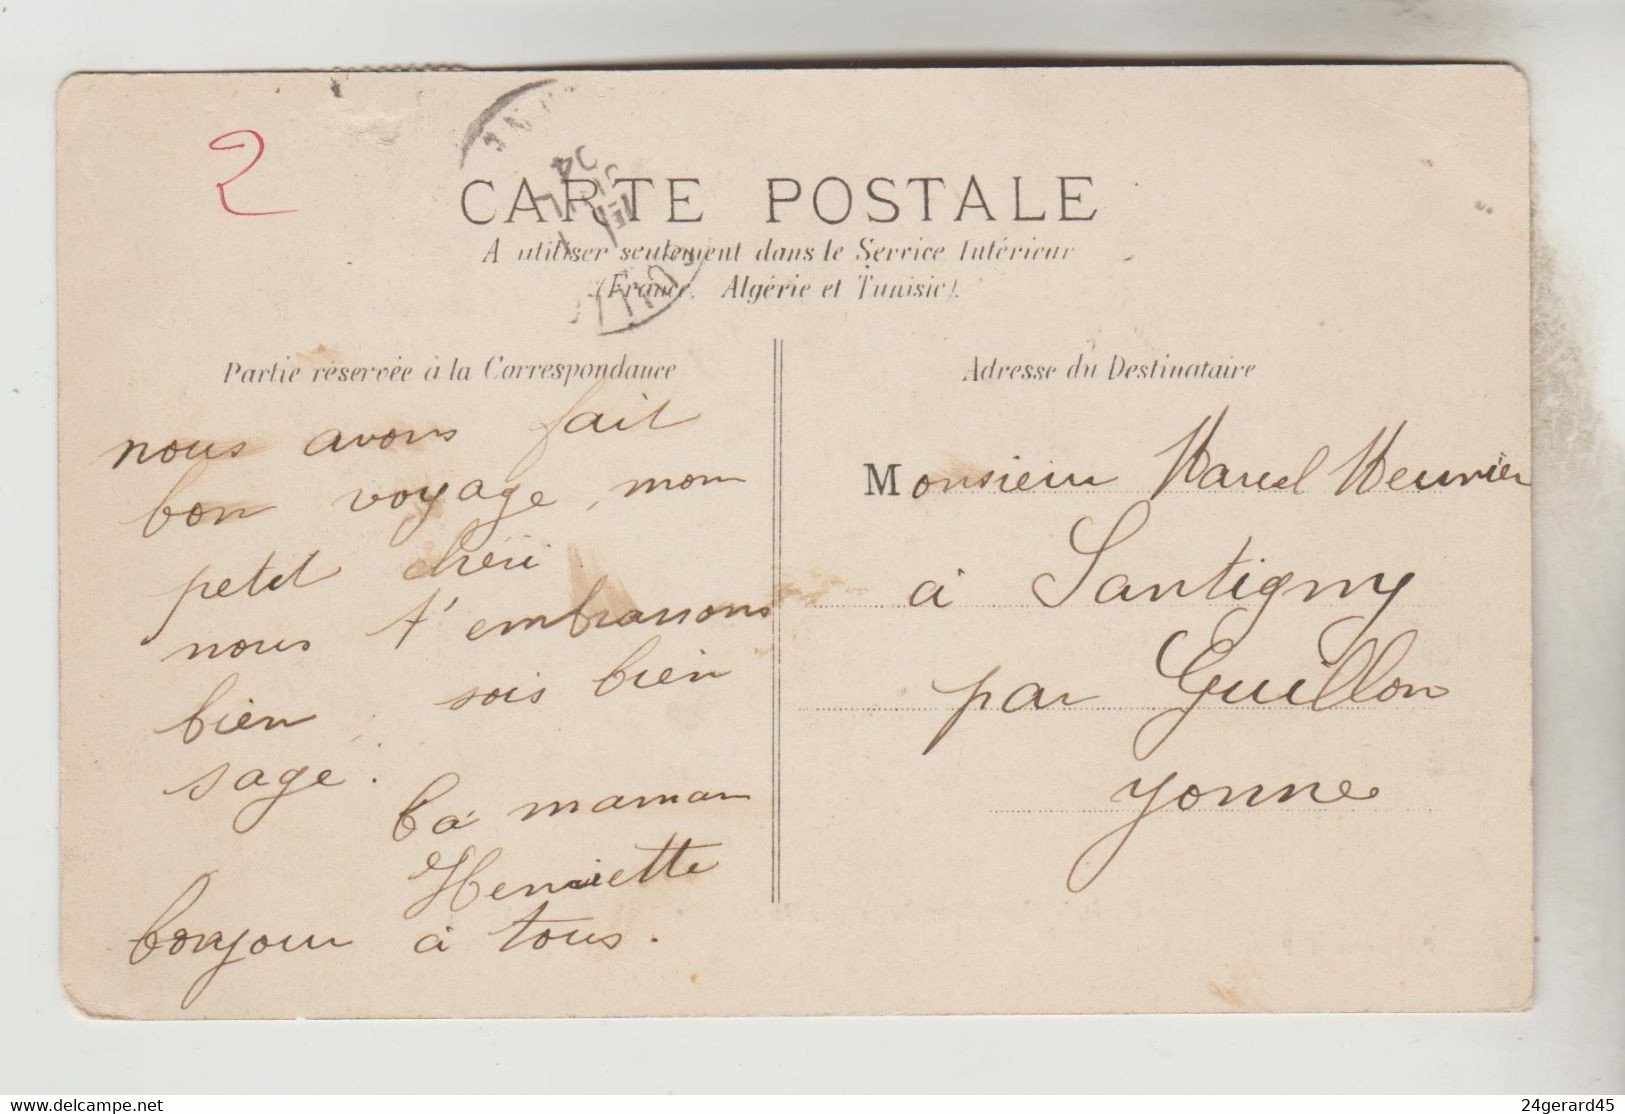 2
CARTE POSTALE
A utiliser seulement dans le Service Intérieur
(France, Algérie et Tunisie).
Partie réservée à la Correspondance
nous avons fait
bon voyage, mon
petit chéri
nous t'embrassons
bien, sois bien
sage.
Ta maman
Henriette
bonjour à tous.
Adresse du Destinataire
Monsieur Marcel Meunier
à Santigny
par Guillon
Yonne
www.delcampe.net
24gerard45